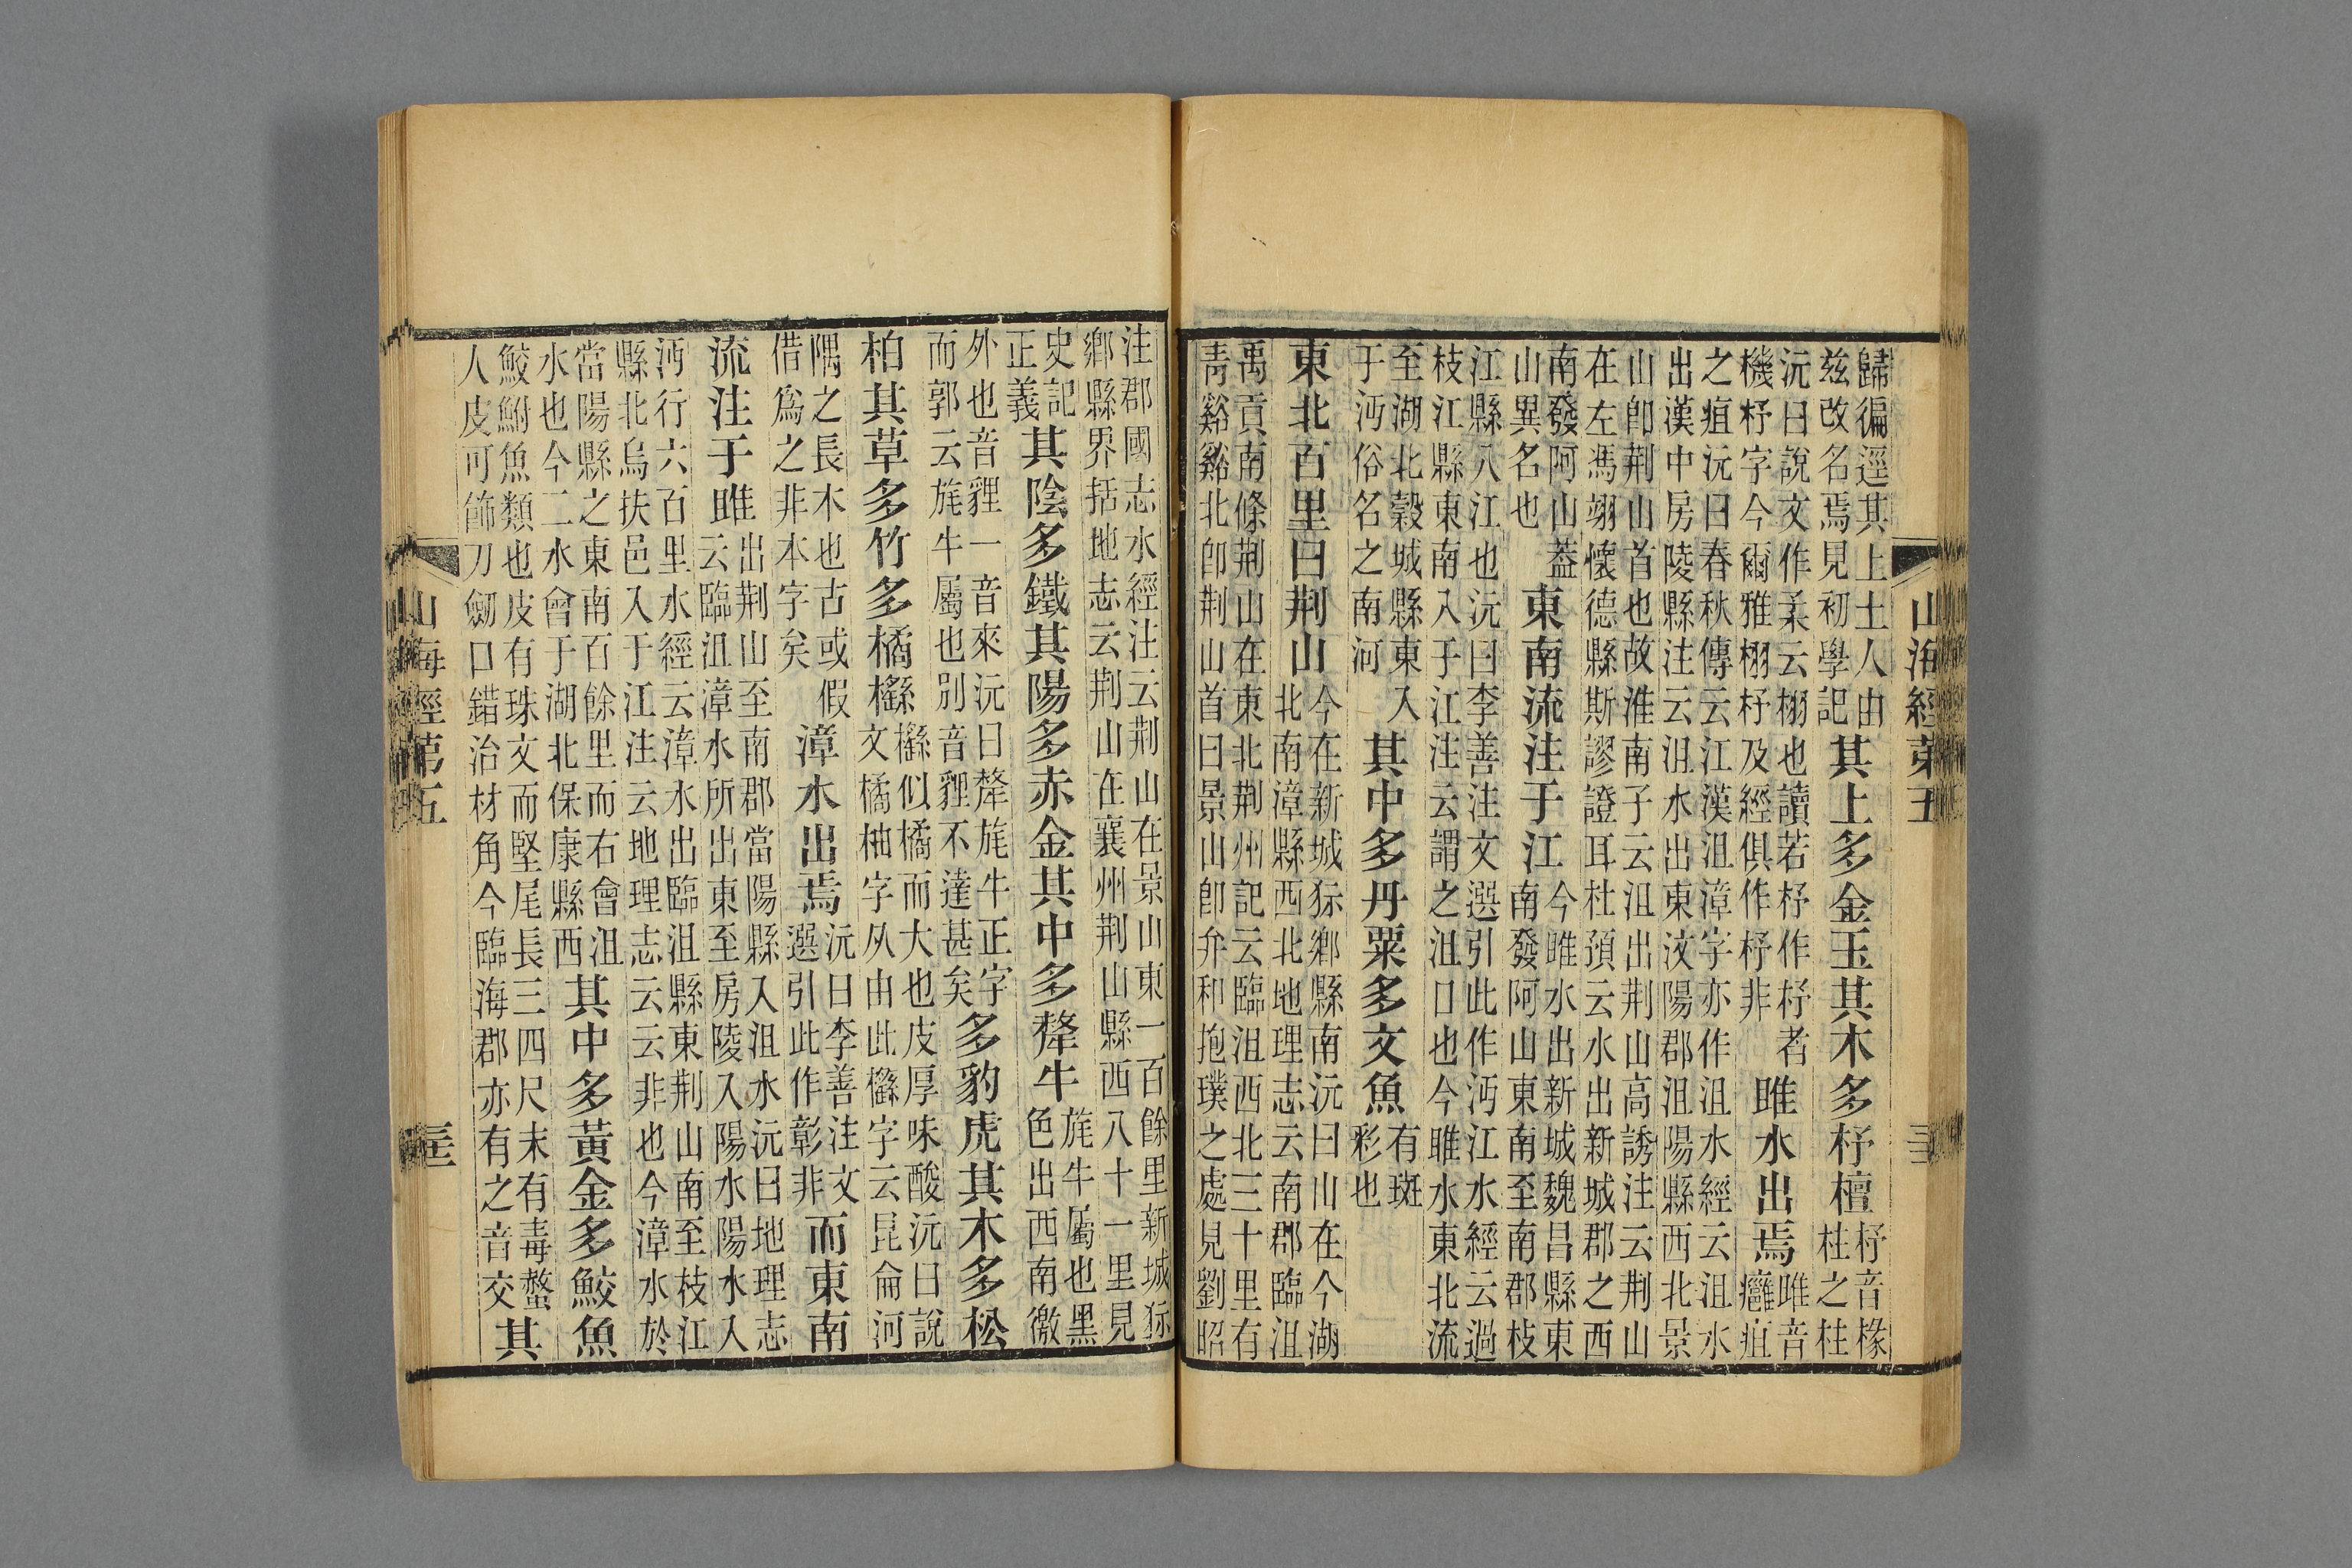 山海經第五
歸徧逕其上土人由茲改名焉見初學記其上多金玉其木多杼檀杼音椽柱之柱
沅曰說文作柔云栩也讀若杼作杼者機杼字今爾雅栩杼及經俱作杼非雎水出焉雎音癰疽
之疽沅曰春秋傳云江漢沮漳字亦作沮水經云沮水出漢中房陵縣注云沮水出東汶陽郡沮陽縣西北景
山卽荆山首也故淮南子云沮出荆山高誘注云荆山在左馮翊懷德縣斯謬證耳杜預云水出新城郡之西
南發阿山葢山異名也東南流注于江今雎水出新城魏昌縣東南發阿山東南至南郡枝
江縣入江也沅曰李善注文選引此作沔江水經云過枝江縣東南入于江注云謂之沮口也今雎水東北流
至湖北穀城縣東入于沔俗名之南河其中多丹粟多文魚有斑彩也
東北百里曰荆山今在新城沶鄉縣南沅曰山在今湖北南漳縣西北地理志云南郡臨沮
禹貢南條荆山在東北荆州記云臨沮西北三十里有青谿谿北卽荆山首曰景山卽弁和抱璞之處見劉昭
注郡國志水經注云荆山在景山東一百餘里新城沶鄉縣界括地志云荆山在襄州荆山縣西八十一里見
史記正義其陰多鐵其陽多赤金其中多犛牛旄牛屬也黑色出西南徼
外也音貍一音來沅曰犛旄牛正字而郭云旄牛屬也別音貍不達甚矣多豹虎其木多松
柏其草多竹多橘櫾櫾似橘而大也皮厚味酸沅曰說文橘柚字从由此櫾字云昆侖河
隅之長木也古或假借爲之非本字矣漳水出焉沅曰李善注文選引此作彰非而東南
流注于雎出荆山至南郡當陽縣入沮水沅曰地理志云臨沮漳水所出東至房陵入陽水陽水入
沔行六百里水經云漳水出臨沮縣東荆山南至枝江縣北烏扶邑入于江注云地理志云云非也今漳水於
當陽縣之東南百餘里而右會沮水也今二水會于湖北保康縣西其中多黃金多鮫魚
鮫鮒魚類也皮有珠文而堅尾長三四尺末有毒螫人皮可飾刀劒口錯治材角今臨海郡亦有之音交其
山海經第五